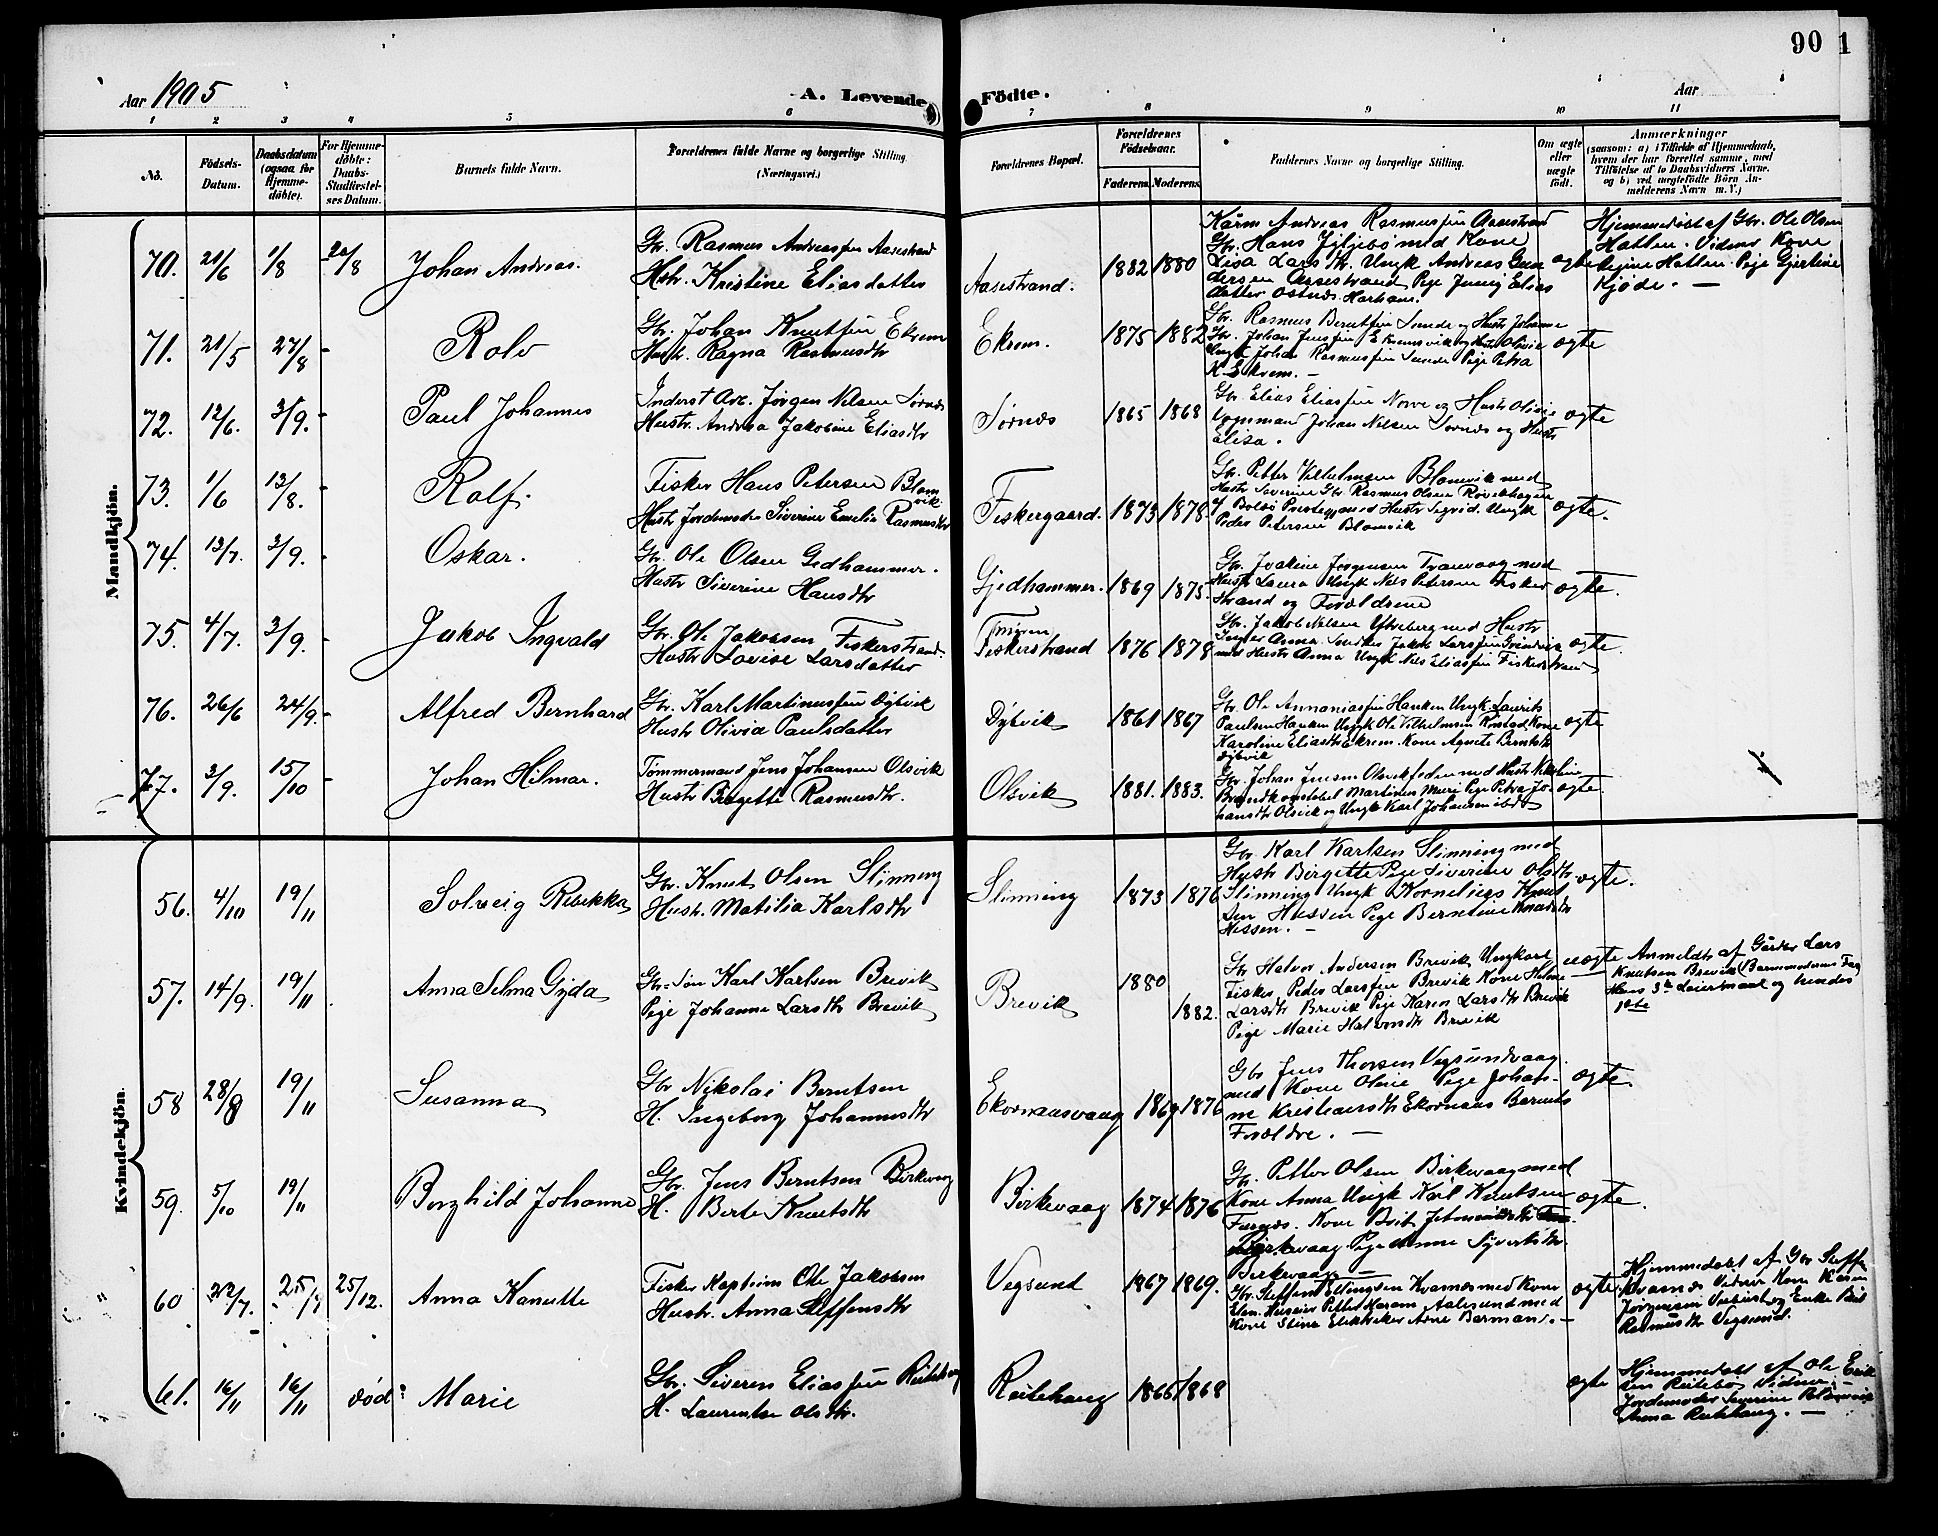 90 1
Aar 1905
A. Levende Födte.
Aar
1 2 3 4 5 6 7 8 9 10 11
No. Födsels-Datum. Daabsdatum (ogsaa for Hjemme-döbte). For Hjemme-döbte: Daabs-Stadfæstel-ses Datum. Barnets fulde Navn. Forældrenes fulde Navne og borgerlige Stilling. (Næringsvei.) Forældrenes Bopæl. Forældrenes Födselsaar. Faderens. Moderens. Faddernes Navne og borgerlige Stilling. Om ægte eller uægte födt. Anmærkninger (saasom: a) i Tilfælde af Hjemmedaab, hvem der har forrettet samme, med Tilföielse af to Daabsvidners Navne, og b) ved uægtefödte Börn An-melderens Navn m. V.)
Mandkjön.
70. 21/6 1/8 20/8 Johan Andreas.
Gbr. Rasmus Andreassen Aasestrand
Hstr. Kristine Eliasdatter
Aasestrand. 1882 1880
Andreas Rasmussen Aasestrand
Gbr. Hans med Kone
Lisa Larsdtr. Ungk Andreas Gun
dersen Aasestrand Pige Elias
datter Harham.
ægte
Hjemmedöbt af Gbr. Ole Olsen
Hatten. Vidner Kone
Regine Hatten. Pige Gjertine
Kjöde. —
71. 21/5 27/8 - Rolv
Gbr. Johan Knutsen Ekrem
Hustr. Ragna Rasmusdtr
Ekrem. 1875 1882
Gbr. Rasmus Berntsen Sunde og Hustr Johanne
Gbr. Johan Jensen Ekremsvik og Hustr Olivia
Ungk Johan Rasmussen Sunde Pige Petra
K. Ekrem. —
ægte
72. 12/6. 3/9. - Paul Johannes
Inderst Arb. Jörgen Nilsen Sörnes
Hustr. Andrea Jakobine Eliasdtr
Sörnes 1865 1868
Gbr. Elias Eliassen Norve og Hustr Olivia
Vognmand Johan Nilsen Sörnes og Hustr
Elisa.
ægte
73. 1/6 13/8. - Rolf.
Fisker Hans Petersen Blom
vik.
Hustr Jordemoder Siverine Emelie Rasmusdtr
Fiskergaard. 1873 1878.
Gbr. Petter Vilhelmsen Blomvik med
Hustr Siverine Gbr Rasmus Olsen Rövikhagen
af Bolsö Prestegj med Hustr Sigrid. Ungk
Peder Petersen Blomvik
ægte.
74. 13/7. 3/9. - Oskar.
Gbr. Ole Olsen Gedhammer.
Hustr Siverine Hansdtr
Gjedhammer. 1869 1875.
Gbr. Joakim Jörgensen Tranvaag med
Hustr Laura Ungk Nils Petersen Fisker
strand og Forældrene
ægte.
75. 4/7. 3/9. - Jakob Ingvald
Gbr. Ole Jakobsen Fiskerstrand.
Hustr Lovise Larsdatter
Fiskerstrand 1876 1878
Gbr. Jakob Nilsen Ytreberg med Hustr
Anna. Snedker Jakob Larssen Grindvik
med Hustr Anna Ungk Nils Eliassen Fiskerstrand
ægte.
76. 26/6 24/9. - Alfred Bernhard
Gbr. Karl Martinussen Dybvik
Hustr Olivia Paulsdatter
Dybvik 1861 1867
Gbr. Ole Annaniassen Hanken Ungk. Laurits
Paulsen Hanken Ungk Ole Vilhelmsen Kone
Karoline Eliasdtr Ekrem. Kone Agnete Berntsdtr
Dybvik
ægte
77. 3/9. 15/10 - Johan Hilmar.
Tömmermand Jens Johansen Olsvik
Hustr Birgette Rasmusdtr.
Olsvik 1881. 1883.
Gbr. Johan Jensen Olsvik med Hustr
Brandkonstabel Martinus Muri Pige Petra Jo-
hansdtr Olsvik og Ungk Karl Johansen ibd
ægte.
Kvindekjön.
56. 4/10 19/11 Solveig Rebekka
Gbr. Knut Olsen Slinning
Hustr. Matilia Karlsdtr
Slinning 1873 1876
Gbr. Karl Karlsen Slinning med
Hustr Birgette Pige Siverine Olsdtr
Slinning Ungk Kornelius Knut
sen Pige Berntine Knutsdtr
Nessen. —
ægte.
57. 14/9. 19/11. Anna Selma Gyda
Gbr-Sön Karl Karlsen Brevik
Pige Johanne Larsdtr Brevik
Brevik 1880 1882.
Gbr Halvor Andersen Brevik Ungkarl
Fisker Peder Larssen Brevik Kone
Larsdtr Brevik Pige Karen Larsdtr Brevik
Pige Marie Halvorsdtr Brevik
uægte
Anmeldt af Gårdbr Lars
Knutsen Brevik (Barnmoderens Far
Hans 3die Leiermaal og hendes
1ste
58 28/8 19/11 Susanna
Gbr Nikolai Berntsen
H. Ingeborg Johannesdtr
Ekornæsvaag 1869 1876
Gbr Jens Thorsen Vegsundvaag
med Kone Oline Pige Johan-
ne Kristiansdtr Ekornæs Barnets
Forældre. —
ægte.
59. 5/10 19/11 Borghild Johanne
Gbr. Jens Berntsen Birkevaag
H. Berte Knutsdtr
Birkevaag 1874 1876
Gbr. Petter Olsen Birkevaag med
Kone Anna Ungk Karl Knutsen
Furnes. Kone Brit
Birkevaag Pige Anne Sivertsdtr
Birkevaag —
ægte.
60 22/7. 25/7 25/12. Anna Kanutte
Fisker Kaptein Ole Jakobsen
Hustr. Anna Steffensdtr
Vegsund 1867 1869.
Gbr. Steffen Ellingsen Kvamnes med Kone
Elen. Petter Haram Aalesund med
Kone Stine Elektriker Arne Barman. —
ægte
Hjemmedöbt af Gbr Steffen
Kvamnes Vidner Kone Karen
Jörgensen Vegsund og Enke Brit
Rasmusdtr Vegsund.
61. 16/11 16/11 död: Marie
Gbr. Siveren Eliassen Reitehaug
H. Laurentse Olsdtr.
Reitehaug 1866 1868
ægte
Hjemmedöbt af Ole Erik
sen Reitebö Vidner:
Jordemoder Severine Blomvik
Anna Reitehaug. —